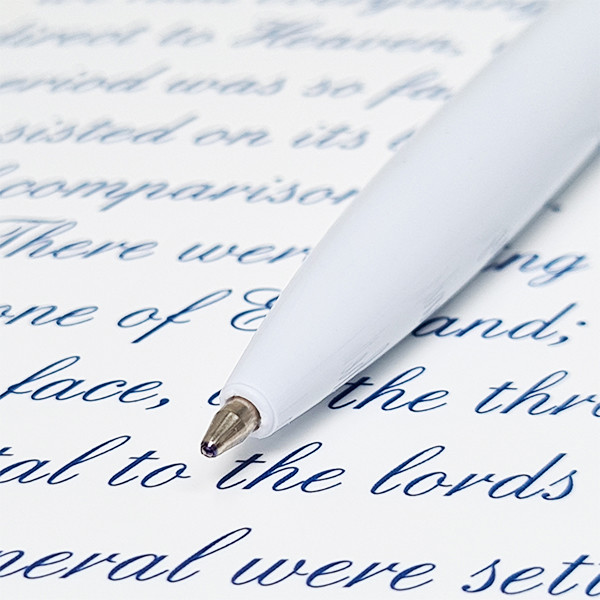 direct to Heaven,
period was so fa
sisted on its
comparison
There wer ng
one of E and;
face, the thr
tal to the lords
neral were sett